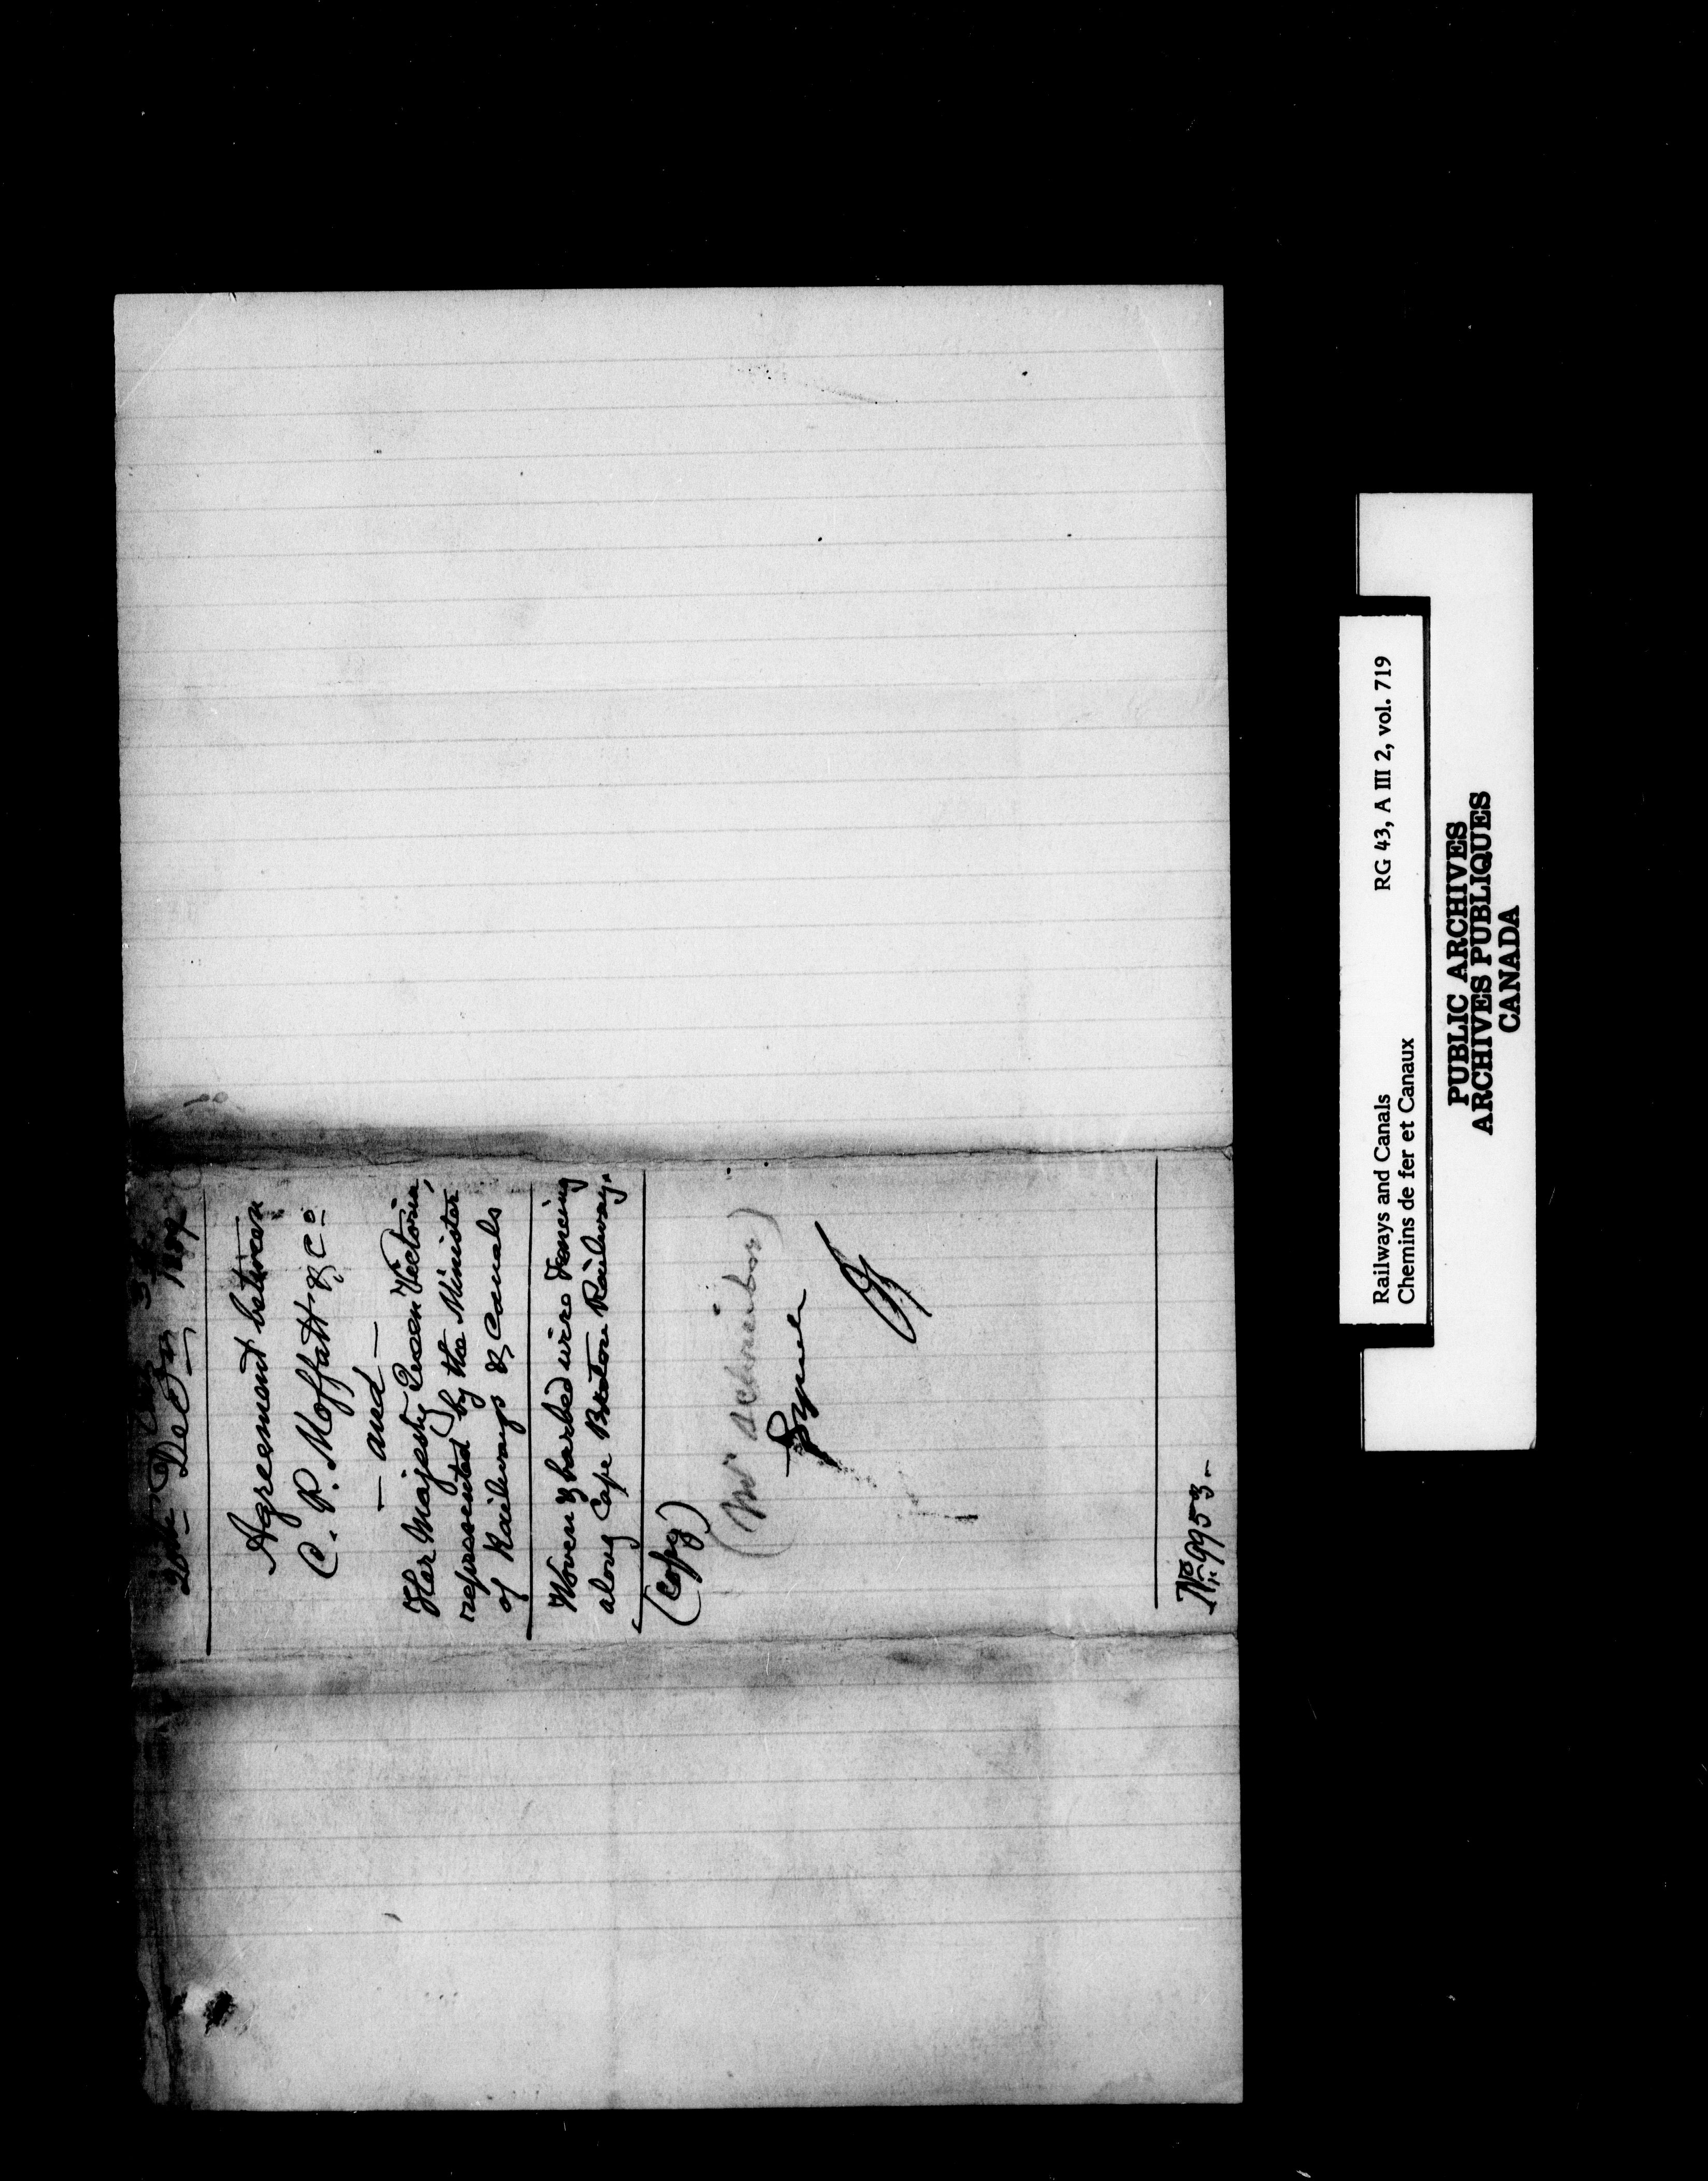 20th Decr 1889
Agreement between
C. P. Moffatt & Co
— and —
Her Majesty Queen Victoria,
represented by the Minister
of Railways & Canals
Woven & barbed wire Fencing
along Cape Breton Railway.
(Copy)
(Mr Schreiber)
No 9953 -
Railways and Canals RG 43, A III 2, vol. 719
Chemins de fer et Canaux
PUBLIC ARCHIVES
ARCHIVES PUBLIQUES
CANADA